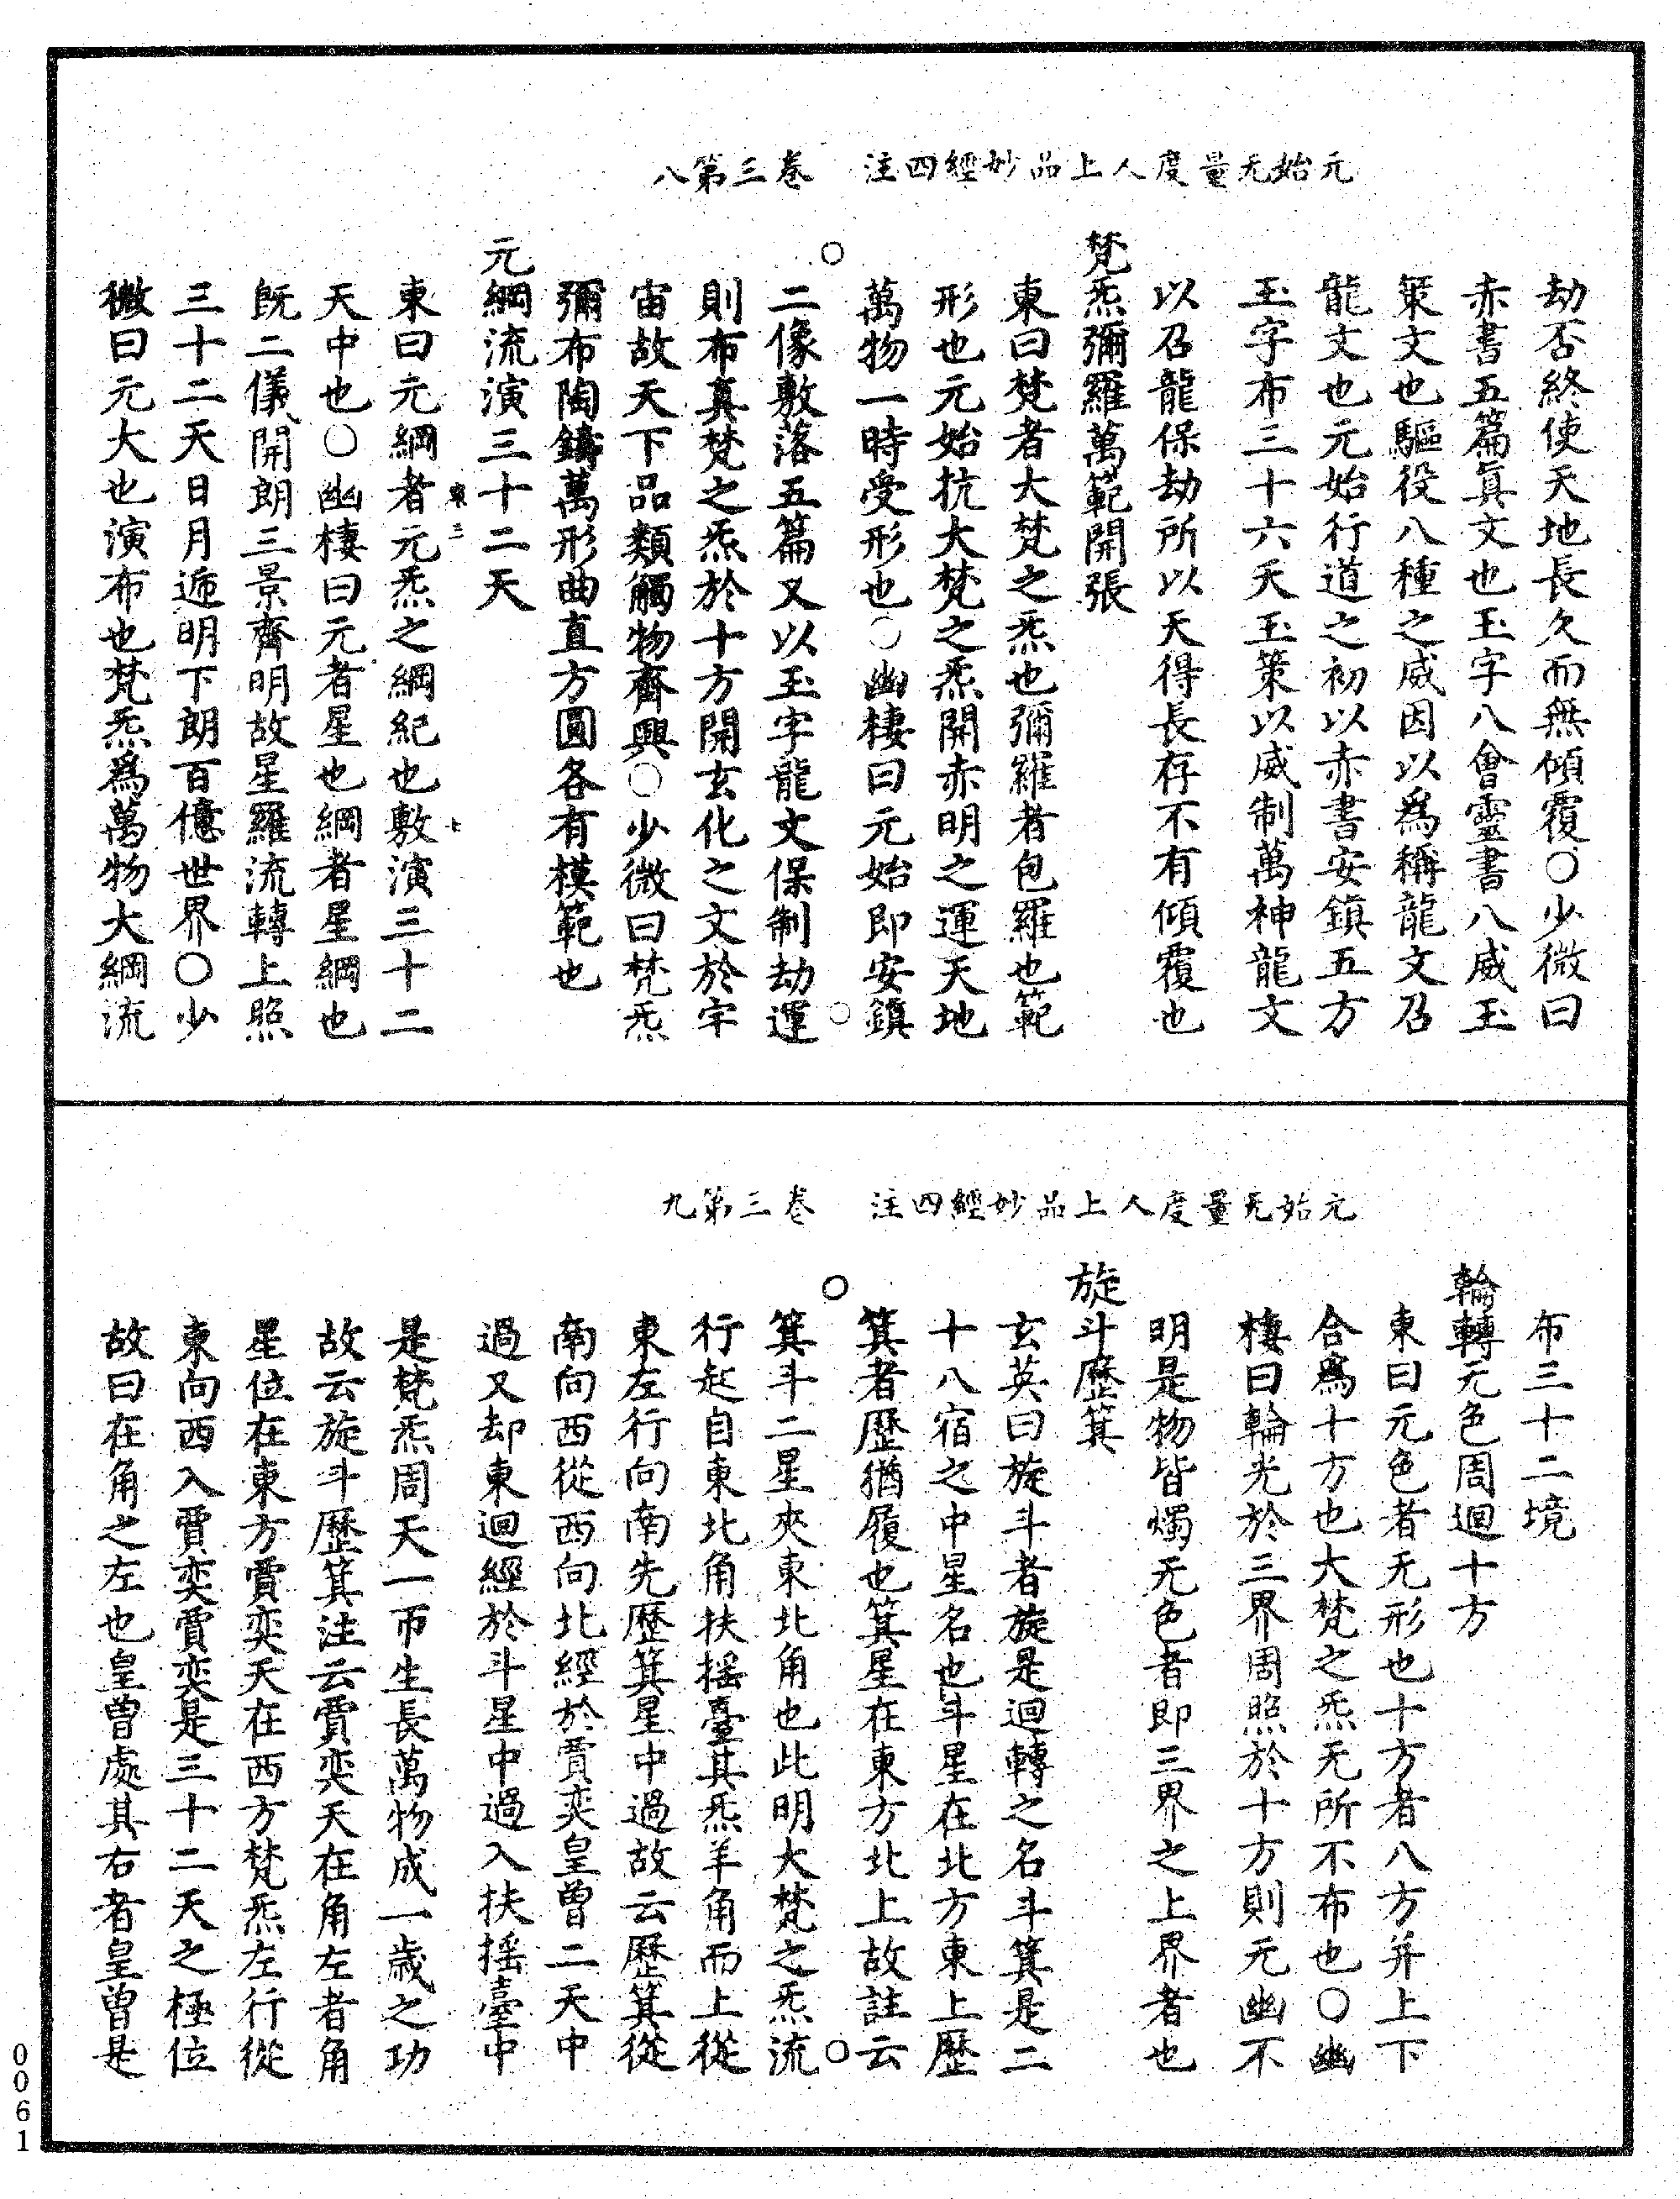 元始无量度人上品妙經四注　卷三第八
劫否終使天地長久而無傾覆〇少微曰
赤書五篇真文也玉字八會靈書八威玉
策文也驅役八種之威因以爲稱龍文召
龍文也元始行道之初以赤書安鎮五方
玉字布三十六天玉策以威制萬神龍文
以召龍保劫所以天得長存不有傾覆也
梵炁彌羅萬範開張
東曰梵者大梵之炁也彌羅者包羅也範
形也元始抗大梵之炁開赤明之運天地
萬物一時受形也〇幽棲曰元始即安鎮
二像敷落五篇又以玉字龍文保制劫運
則布真梵之炁於十方開玄化之文於宇
宙故天下品類觸物齊興〇少微曰梵炁
彌布陶鑄萬形曲直方圓各有模範也
元綱流演三十二天
東三　七
東曰元綱者元炁之綱紀也敷演三十二
天中也〇幽棲曰元者星也綱者星綱也
既二儀開朗三景齊明故星羅流轉上照
三十二天日月遞明下朗百億世界〇少
微曰元大也演布也梵炁爲萬物大綱流
元始无量度人上品妙經四注　卷三第九
布三十二境
輪轉无色周迴十方
東曰元色者无形也十方者八方并上下
合爲十方也大梵之炁无所不布也〇幽
棲曰輪光於三界周照於十方則元幽不
明是物皆燭无色者即三界之上界者也
旋斗歷箕
玄英曰旋斗者旋是迴轉之名斗箕是二
十八宿之中星名也斗星在北方東上歷
箕者歷猶履也箕星在東方北上故註云
箕斗二星夾東北角也此明大梵之炁流
行起自東北角扶摇臺其炁羊角而上從
東左行向南先歷箕星中過故云歷箕從
南向西從西向北經於賈奕皇曾二天中
過又却東迴經於斗星中過入扶摇臺中
是梵炁周天一帀生長萬物成一歲之功
故云旋斗歷箕注云賈奕天在角左者角
星位在東方賈奕天在西方梵炁左行從
東向西入賈奕賈奕是三十二天之極位
故曰在角之左也皇曾處其右者皇曾是
0061